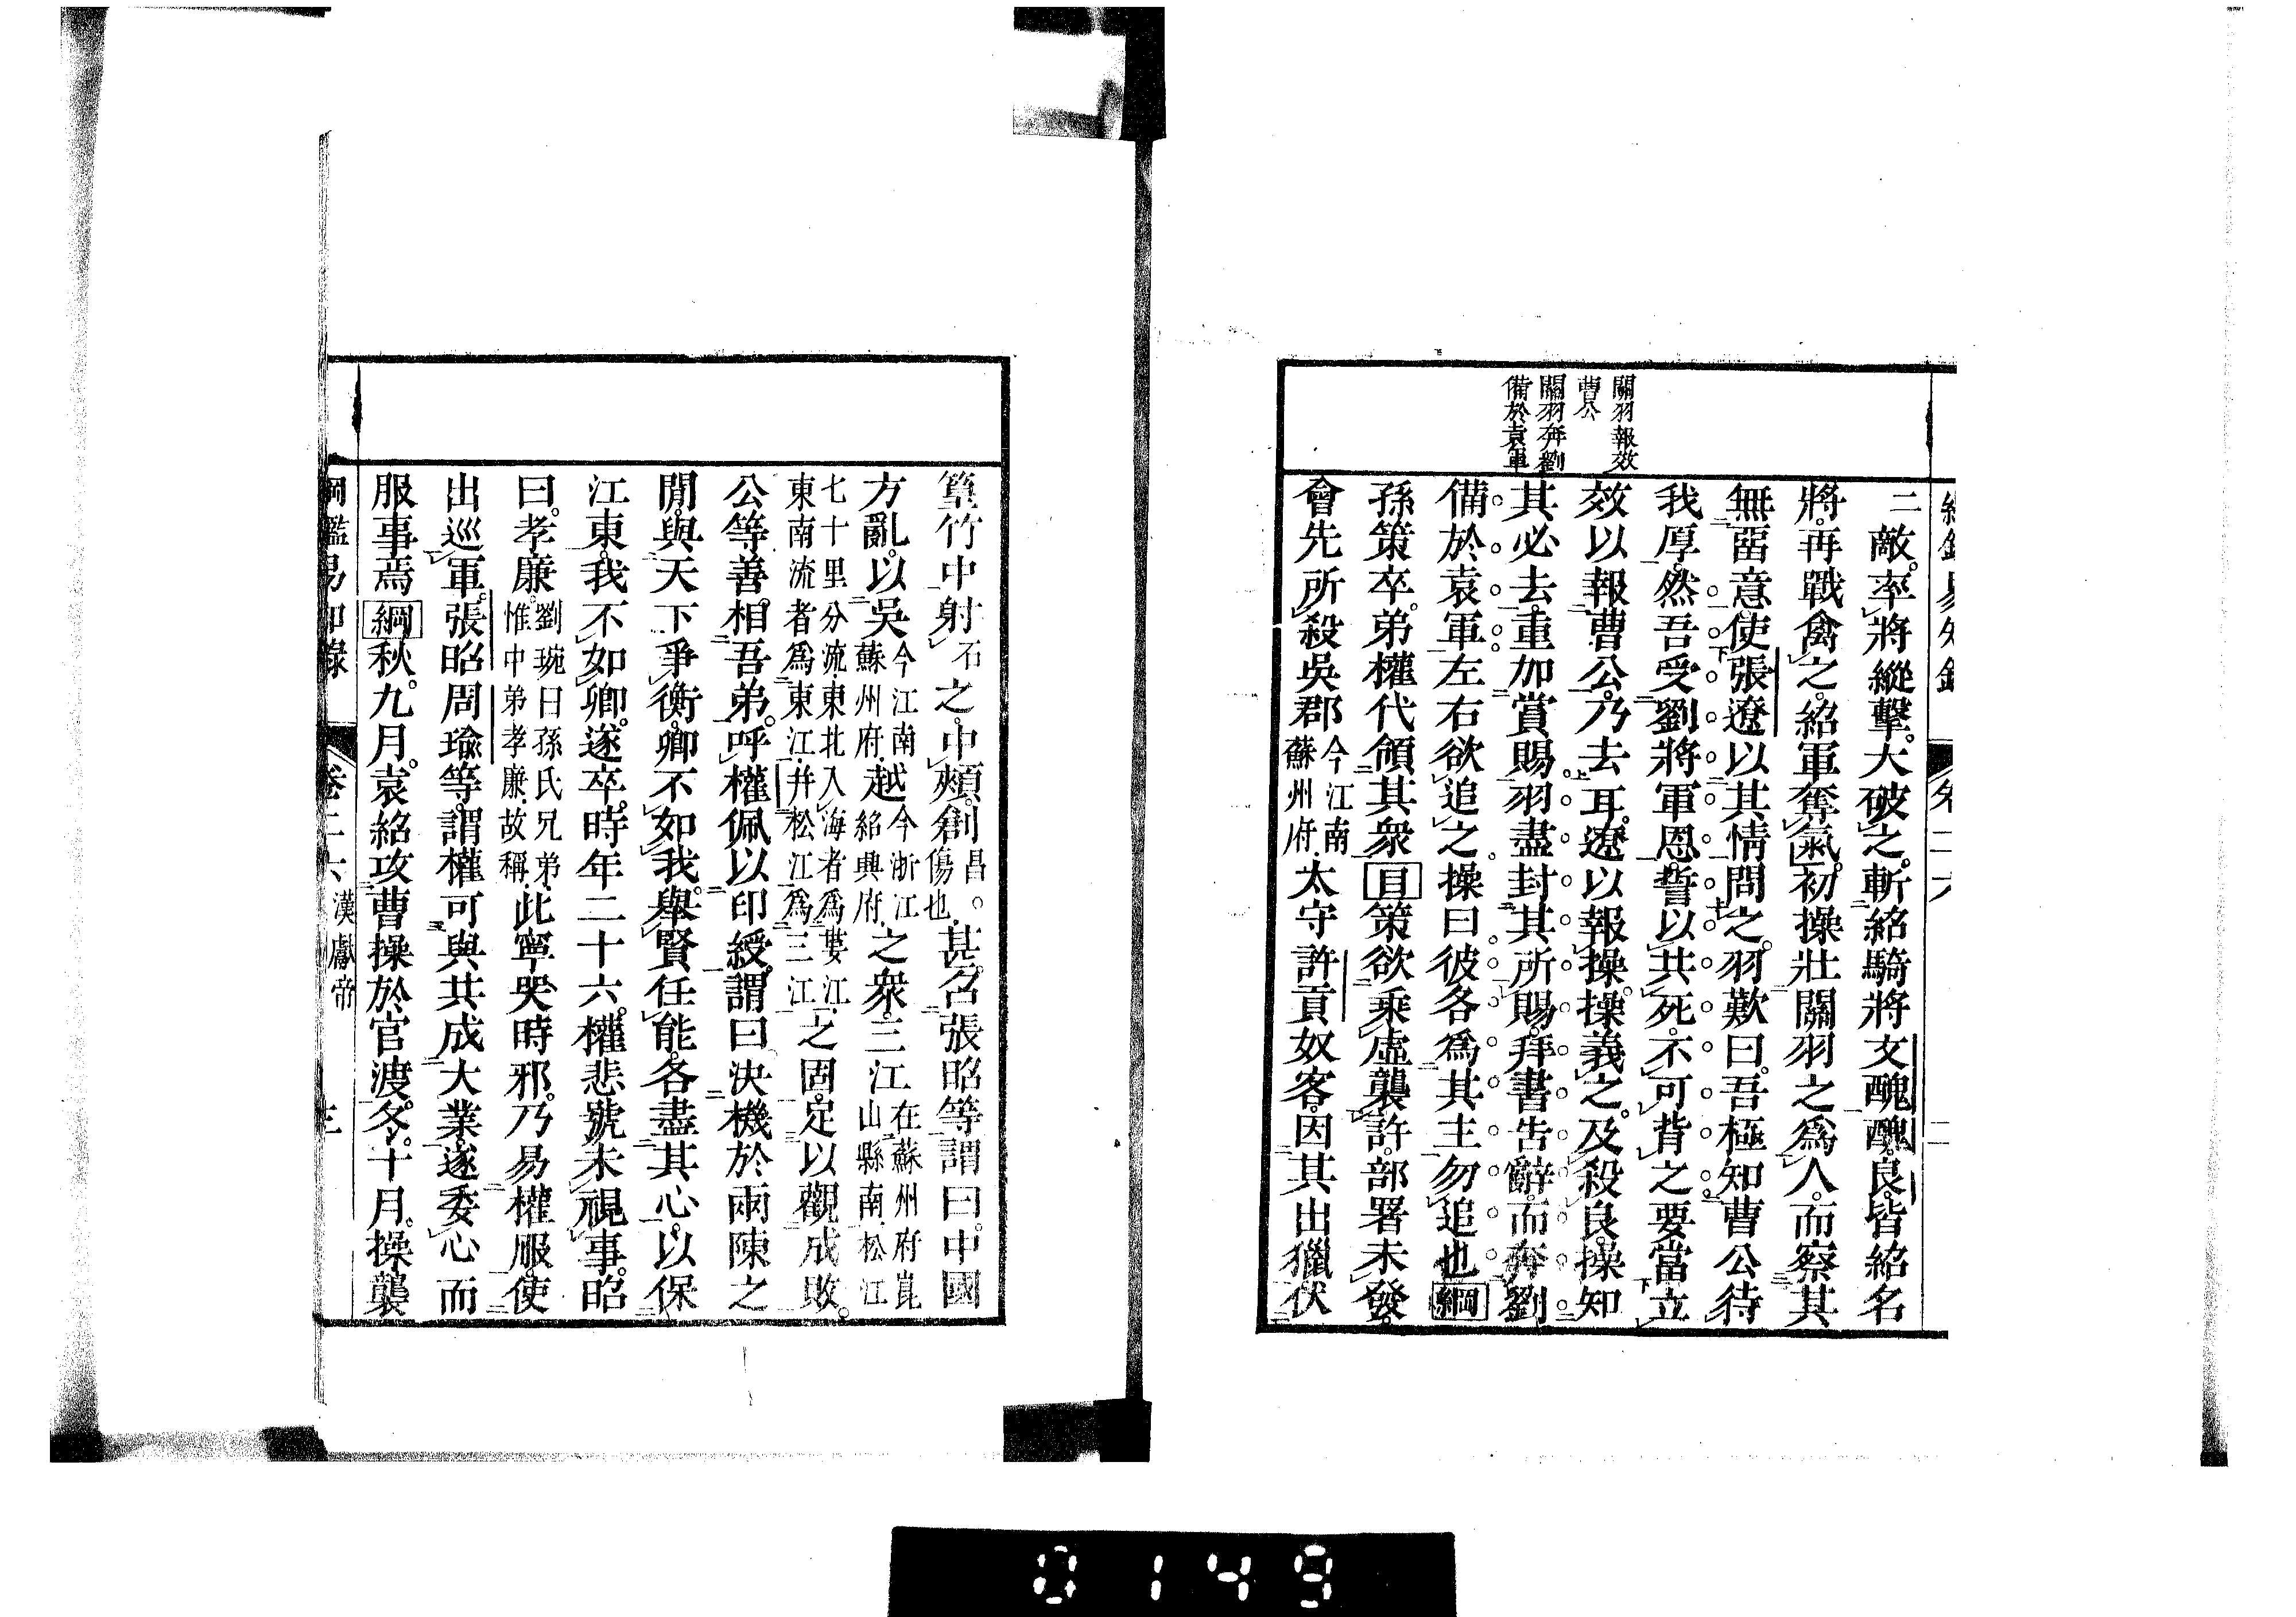 關羽報效
曹公
關羽奔劉
備於袁軍
敵。率將縱擊。大破之。斬紹騎將文醜。醜、良皆紹名
將。再戰禽之。紹軍奪氣。初操壯關羽之爲人。而察其
無畱意。使張遼以其情問之。羽歎曰。吾極知曹公待
我厚。然吾受劉將軍恩。誓以共死。不可背之。要當立
效以報曹公。乃去耳。遼以報操。操義之。及殺良。操知
其必去。重加賞賜。羽盡封其所賜。拜書告辭。而奔劉
備於袁軍。左右欲追之。操曰彼各爲其主勿追也綱
孫策卒。弟權代領其衆目策欲乘虛襲許。部署未發。
會先所殺吳郡今江南蘇州府太守許貢奴客。因其出獵。伏
篁竹中射石之。中頰。創昌。傷也甚。召張昭等謂曰。中國
方亂。以吳今江南蘇州府越今浙江紹興府之衆。三江在蘇州府崑山縣南松江
七十里分流。東北入海者爲婁江。東南流者爲東江。并松江爲三江之固。足以觀成敗。
公等善相吾弟。呼權佩以印綬。謂曰決機於兩陳之
閒。與天下爭衡。卿不如我。舉賢任能。各盡其心。以保
江東。我不如卿。遂卒。時年二十六。權悲號未視事。昭
曰。孝廉劉琬曰孫氏兄弟惟中弟孝廉。故稱此寧哭時邪。乃易權服。使
出巡軍。張昭周瑜等。謂權可與共成大業。遂委心而
服事焉綱秋。九月。袁紹攻曹操於官渡。冬。十月。操襲
綱鑑易知錄 卷二六 漢獻帝
0149